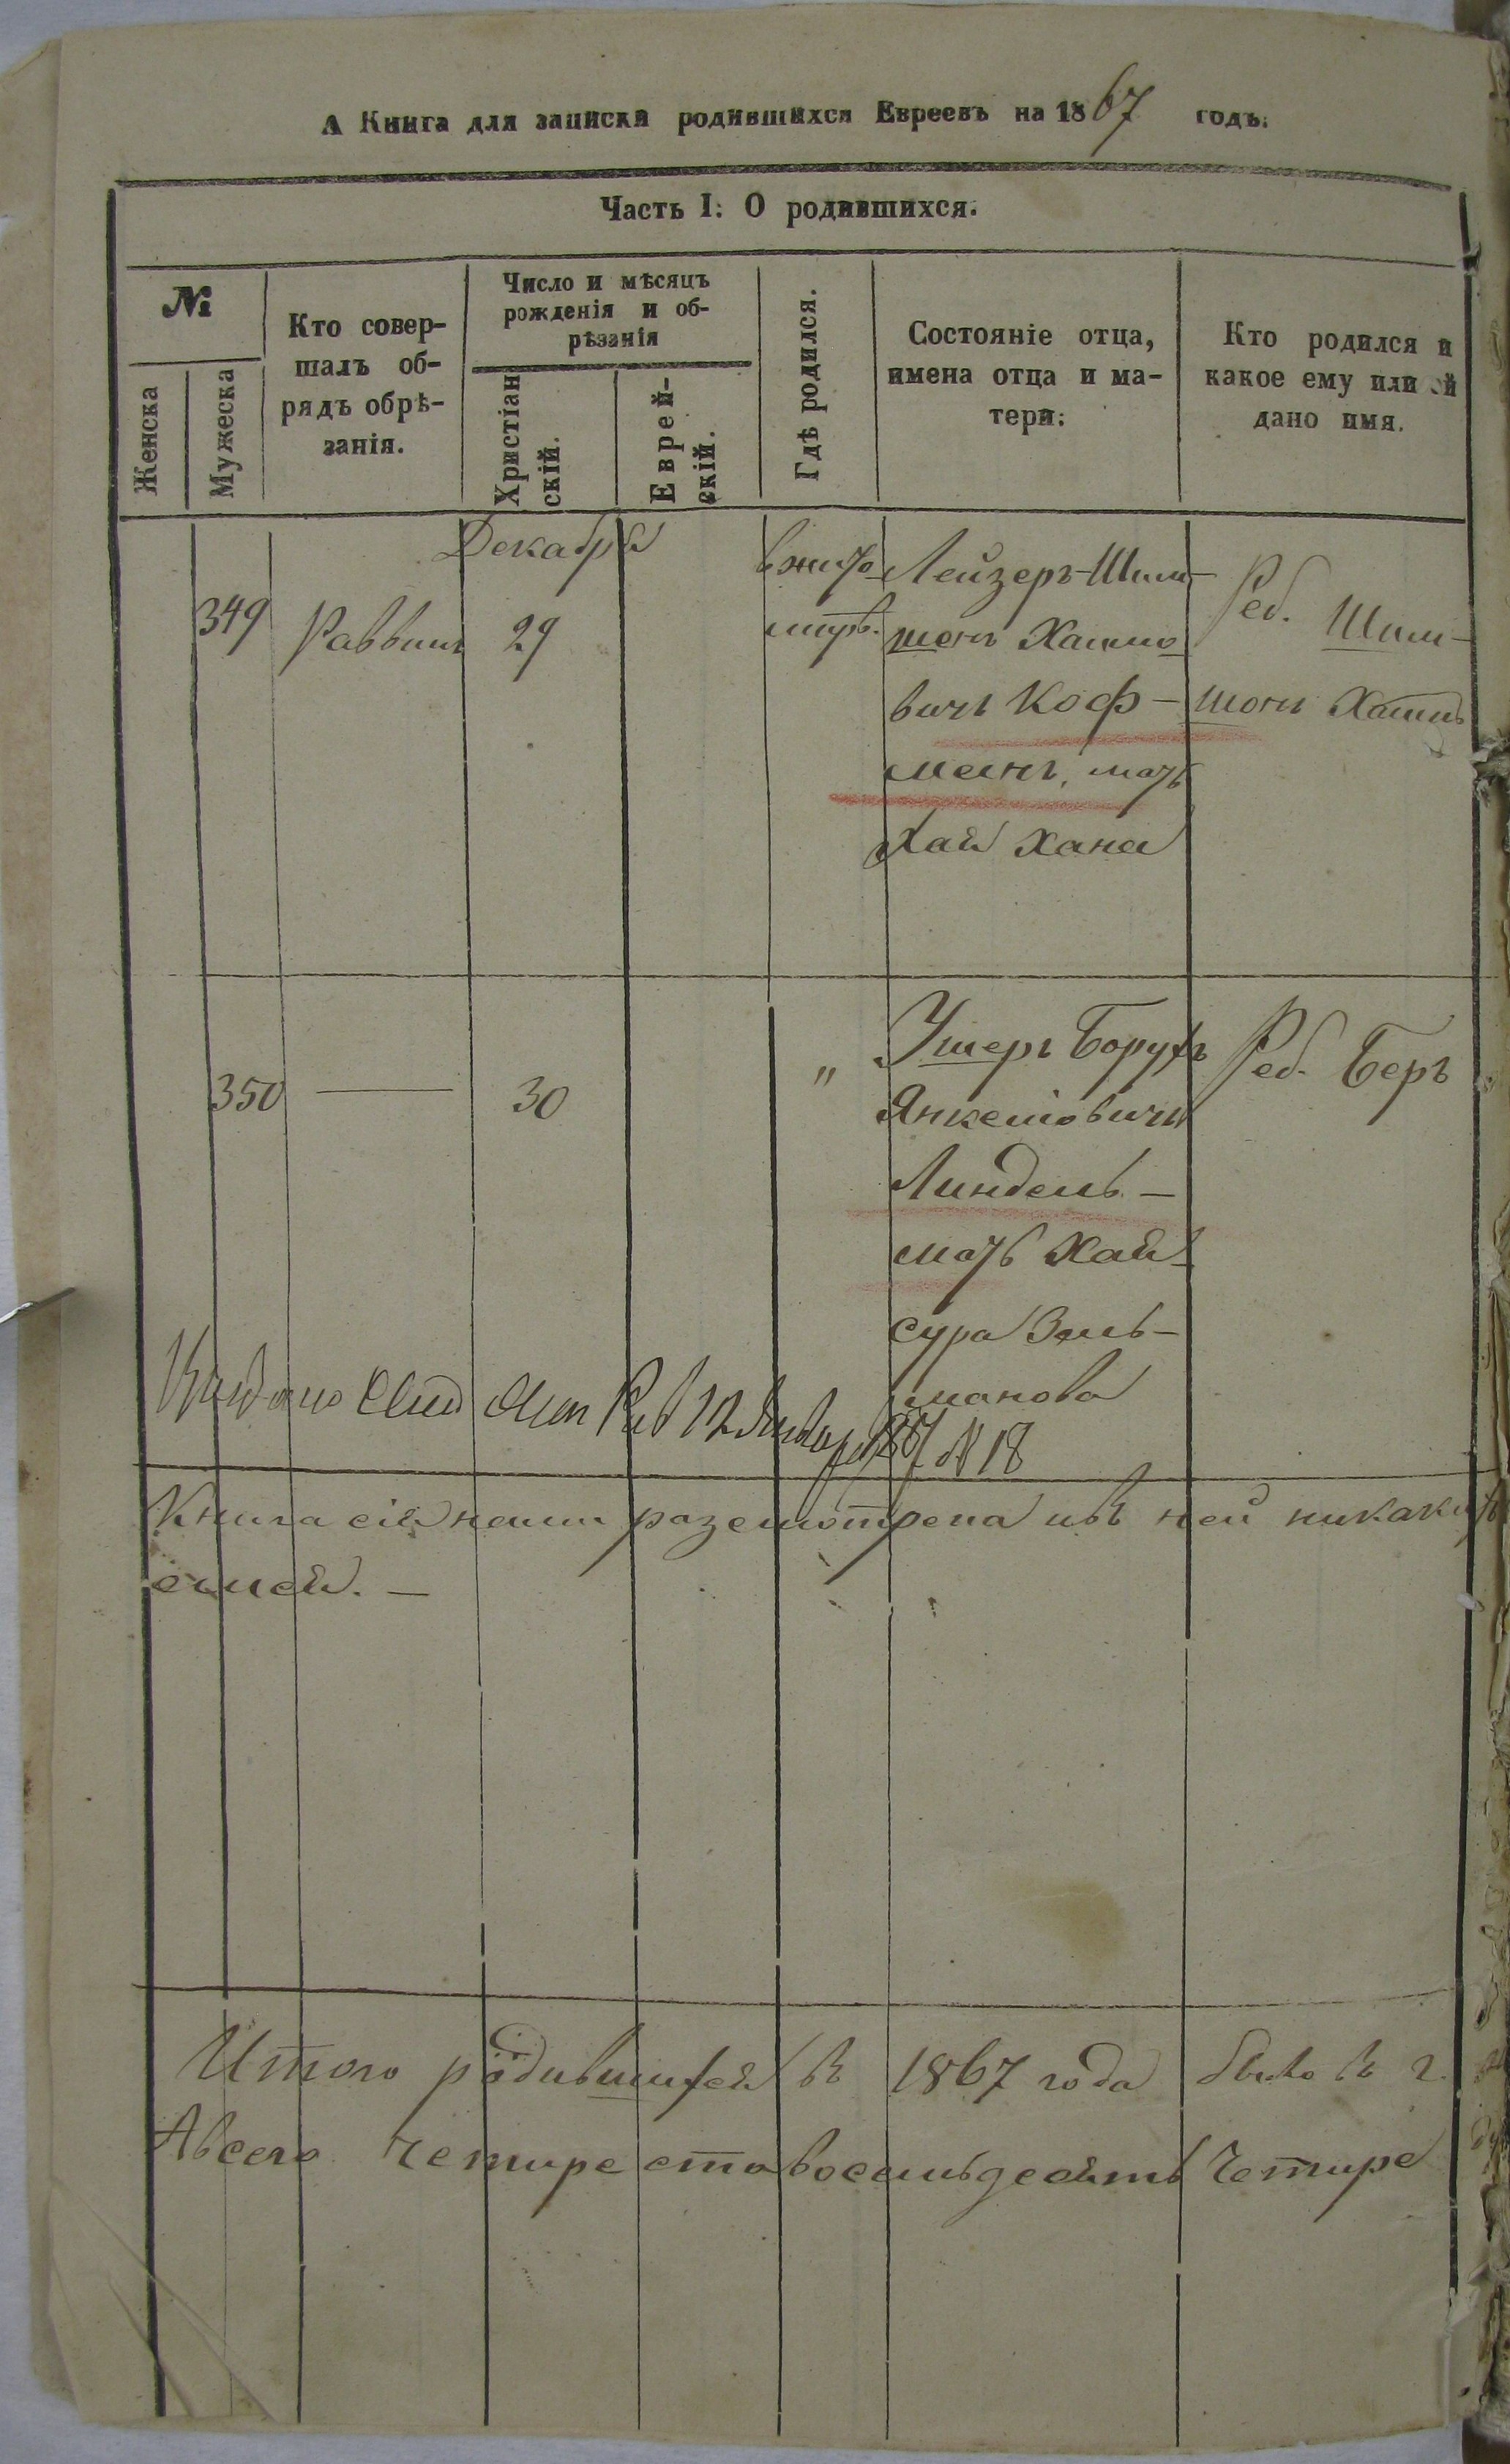 А Книга для записки родившихся Евреевъ на 1867 годъ.
Часть I: О родившихся.
№
Женска
Мужеска
Кто совер-
шалъ об-
рядъ обрѣ-
занія.
Число и мѣсяцъ
рожденія и об-
рѣзанія
Христіан
скій.
Еврей-
скій.
Гдѣ родился.
Состояніе отца,
имена отца и ма-
тери:
Кто родился и
какое ему или ей
дано имя.
Декабря
349
Раввинъ
29
в жито
мірѣ.
Лейзеръ-Шим-
шонъ Хаимо
вичъ Коф-
манъ, мать
Хая Хана
Реб. Шим-
шонъ Хаимъ
350
30
"
Ушеръ Борухъ
Янкеліовичъ
Линдель-
мать Хая
Сура Зель-
манова
Реб. Беръ
12 Января 1867 № 18
Книга сія нами разсмотрена и въ ней никакихъ
Итого родившихся въ 1867 года было въ г.
А всего четире ста восемьдесятъ Четире